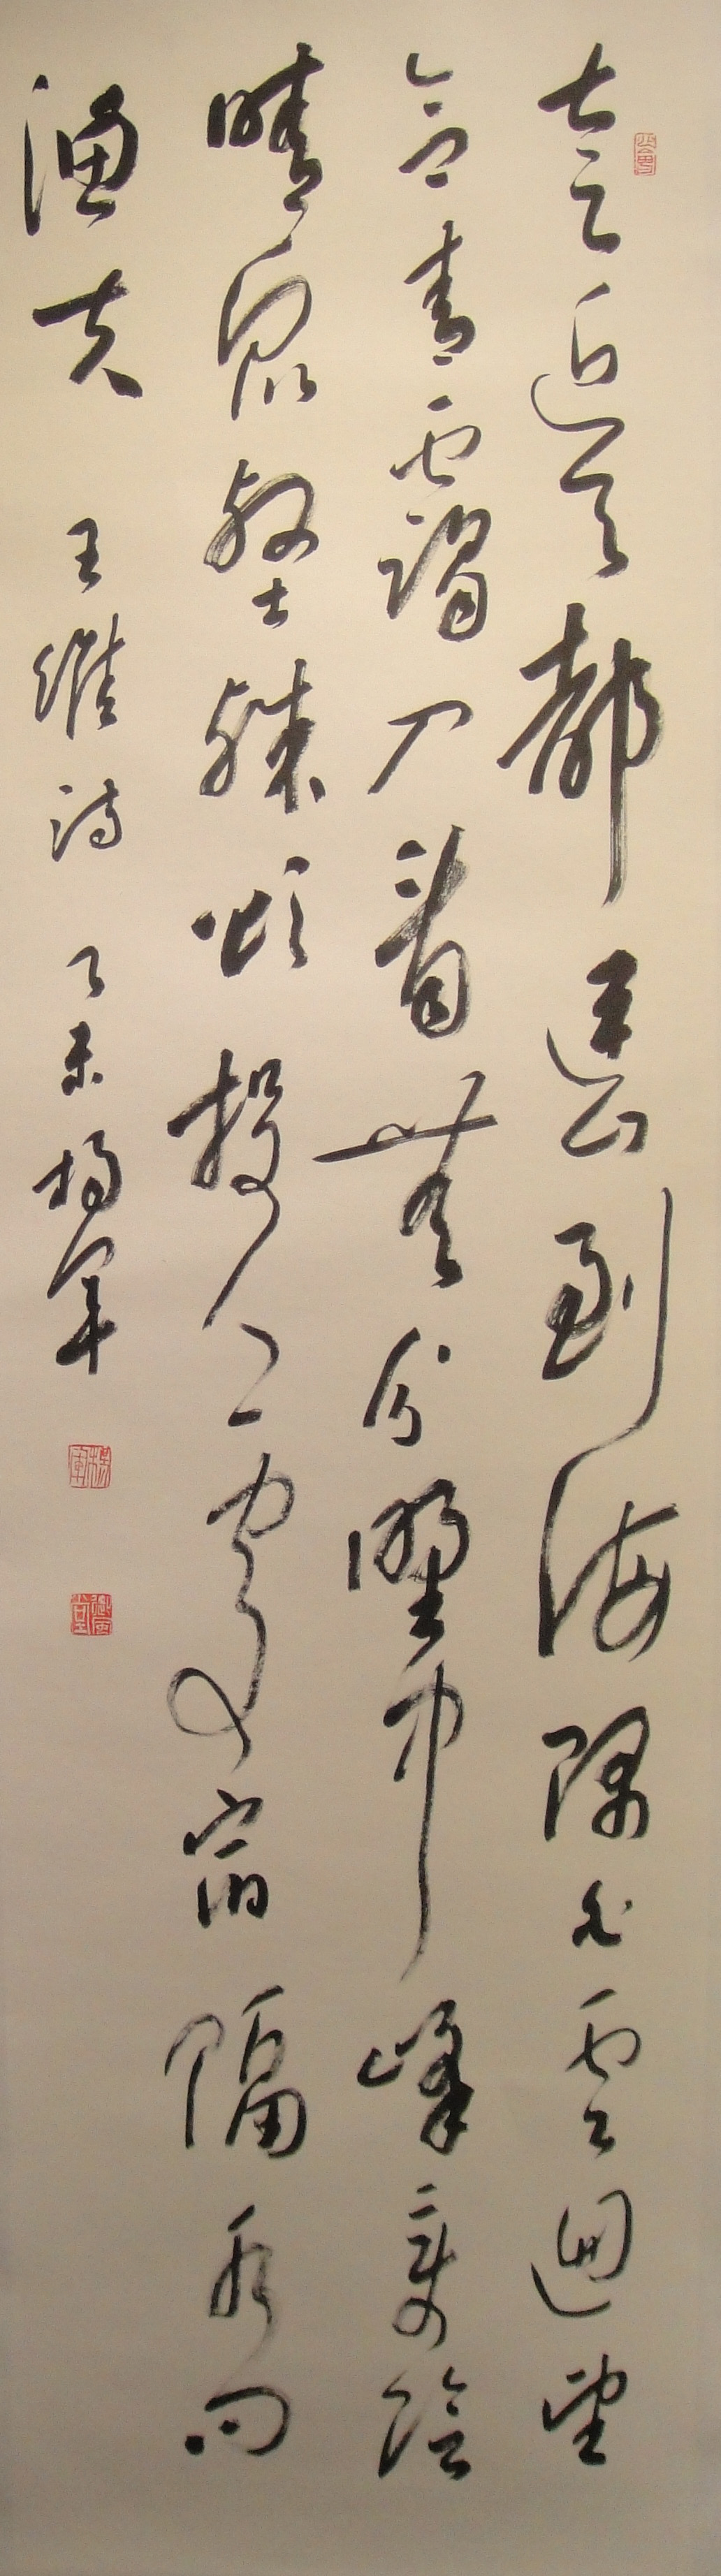 太乙近天都連山到海隅白雲迴望
合青靄入看無分野中峰變陰
晴眾壑殊欲投人處宿隔水問
漁夫 王維詩 乙未楊軍
楊軍